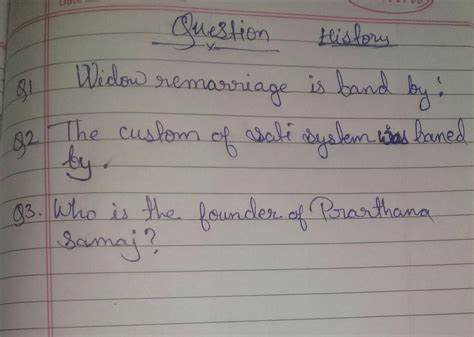 Question History
Q1 Widow remarriage is band by:
Q2 The custom of sati system was baned
by.
Q3. Who is the founder of Prarthana
Samaj?